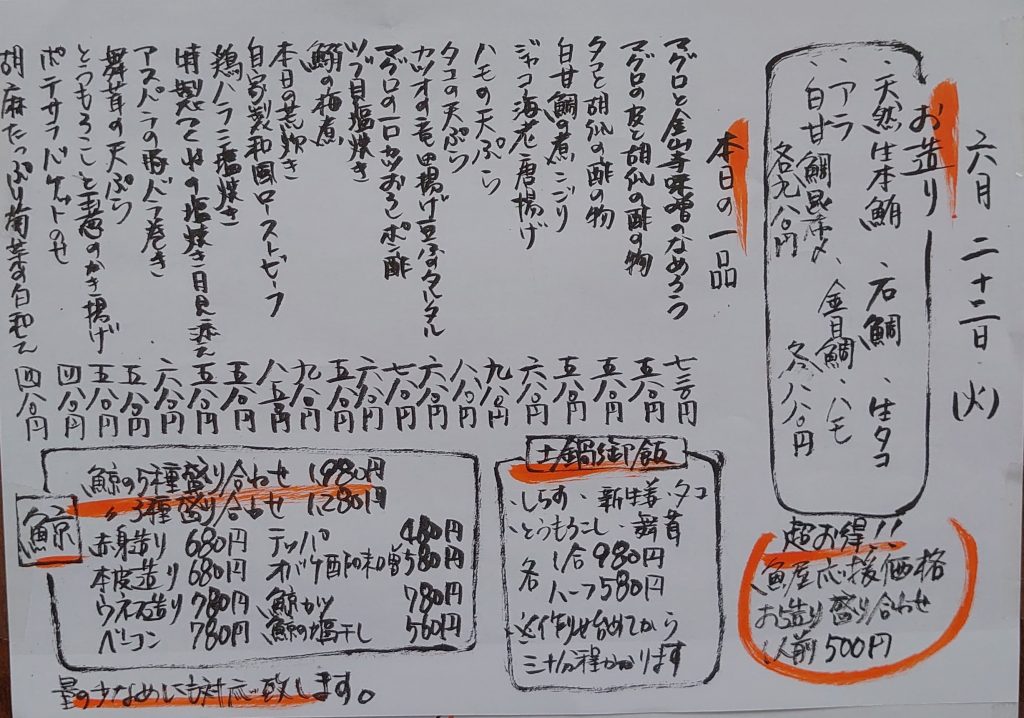 六月二十二日(火)
お造り
、天然生本鮪 、石鯛 、生タコ
、アラ 、金目鯛 、ハモ
、白甘鯛昆布〆
各九八〇円
各八八〇円
本日の一品
マグロと金山寺味噌のなめろう 七三〇円
マグロの皮と胡瓜の酢の物 五八〇円
タコと胡瓜の酢の物 五八〇円
白甘鯛の煮こごり 五八〇円
ジャコ海老唐揚げ 六八〇円
ハモの天ぷら 九八〇円
タコの天ぷら 八八〇円
カツオの竜田揚げ豆ふタルタル 六八〇円
マグロの一口カツおろしポン酢 七八〇円
ツブ貝塩焼き 六八〇円
鰯の梅煮
本日の荒炊き
自家製和風ローストビーフ
鶏ハラミ塩焼き 五八〇円
特製つくねの塩焼き月見添え 五八〇円
アスパラの豚バラ巻き 六八〇円
舞茸の天ぷら 五八〇円
とうもろこしと玉葱のかき揚げ 五八〇円
ポテサラバゲットのせ 四八〇円
胡麻たっぷり菊菜の白和え 四八〇円
超お得!!
魚屋応援価格
お造り盛り合わせ
1人前500円
土鍋御飯
・しらす・新生姜・タコ
・とうもろこし・舞茸
各 1合980円
ハーフ580円
※作り始めてから
三十分程かかります
鯨
鯨の5種盛り合わせ 1,980円
〃3種盛り合わせ 1,280円
赤身造り 680円 テッパ 480円
本皮造り 680円 オバケ酢味噌 580円
ウネス造り 780円 鯨カツ 780円
ベーコン 780円 鯨の塩干し 560円
量の少なめにも対応致します。